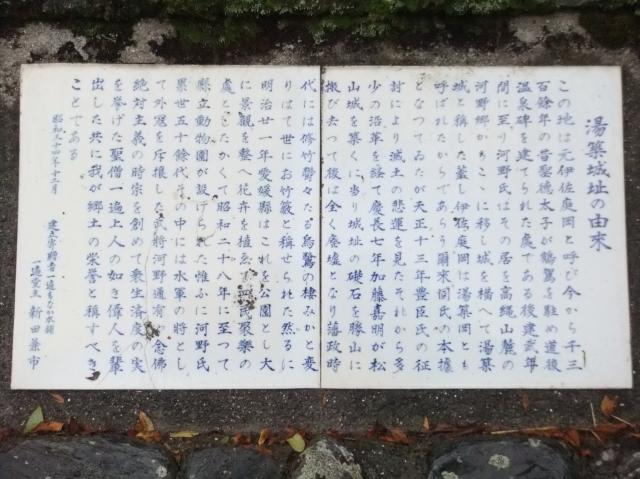 湯築城址の由来
この地は元伊佐庭岡と呼び今から千三
百餘年の昔聖徳太子が鶴駕を駐め道後
温泉碑を建てられた處である後建武年
間に至り河野氏はその居を高縄山麓の
河野郷からこゝに移し城を構へて湯築
城と稱した蓋し伊佐庭岡は湯築岡とも
呼ばれたからであらう爾来同氏の本據
となつてゐたが天正十三年豊臣氏の征
討により滅亡の悲運を見たそれから多
少の沿革を経て慶長七年加藤嘉明が松
山城を築くに当り城址の礎石を勝山に
搬び去つて後は全く廃墟となり藩政時
代には修竹鬱々たる烏鷺の棲みかと変
りはて世にお竹藪と稱せられた然るに
明治廿一年愛媛縣はこれを公園とし大
に景観を整へ花卉を植ゑ市民聚楽の
處としたかくて昭和二十八年に至つて
縣立動物園が設けられた惟ふに河野氏
累世五十餘代その中には水軍の将とし
て外寇を斥攘した武将河野通有や念佛
絶対主義の時宗を創めて衆生済度の実
を挙げた聖僧一遍上人の如き偉人を輩
出した共に我が郷土の栄誉と稱すべき
ことである
昭和三十四年十二月
建立寄贈者 一遍もなか本舗
一遍堂主 新田兼市